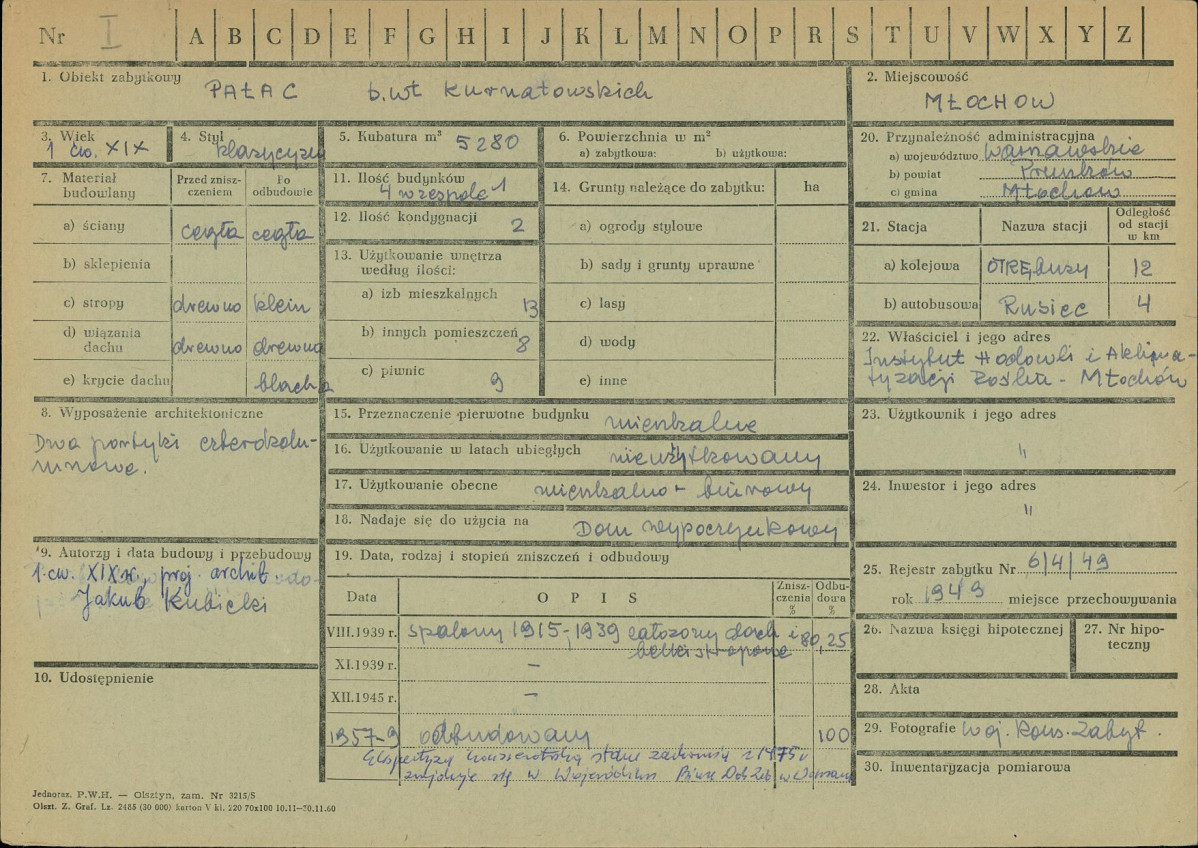 Nr I A B C D E F G H I J K L M N O P R S T U V W X Y Z
1. Obiekt zabytkowy PAŁAC b. wł Kurnatowskich
2. Miejscowość
MŁOCHOW
3. Wiek
1 ćw. XIX
4. Styl
klasycyzm
5. Kubatura m³ 5280
6. Powierzchnia w m²
a) zabytkowa: b) użytkowa:
20. Przynależność administracyjna
a) województwo Warszawskie
b) powiat Pruszków
c) gmina Młochów
7. Materiał
budowlany
Przed znisz-
czeniem
Po
odbudowie
a) ściany cegła cegła
b) sklepienia
c) stropy drewno klein
d) wiązania
dachu drewno drewno
e) krycie dachu blacha
11. Ilość budynków
4 w zespole 1
12. Ilość kondygnacji 2
13. Użytkowanie wnętrza
według ilości:
a) izb mieszkalnych 13
b) innych pomieszczeń 8
c) piwnic 9
14. Grunty należące do zabytku: ha
a) ogrody stylowe
b) sady i grunty uprawne
c) lasy
d) wody
e) inne
21. Stacja Nazwa stacji
Odległość
od stacji
w km
a) kolejowa OTRĘBUSY 12
b) autobusowa Rusiec 4
22. Właściciel i jego adres
Instytut Hodowli i Aklima-
tyzacji Roślin - Młochów
8. Wyposażenie architektoniczne
Dwa portyki czterokolu-
mnowe.
15. Przeznaczenie pierwotne budynku mieszkalne
16. Użytkowanie w latach ubiegłych nieużytkowany
17. Użytkowanie obecne mieszkalno - biurowy
18. Nadaje się do użycia na Dom wypoczynkowy
23. Użytkownik i jego adres
"
24. Inwestor i jego adres
"
9. Autorzy i data budowy i przebudowy
1. ćw. XIX w, proj. archit.
Jakub Kubicki
10. Udostępnienie
19. Data, rodzaj i stopień zniszczeń i odbudowy
Data OPIS
Znisz-
czenia
%
Odbu-
dowa
%
VIII.1939 r. spalony 1915-1939 założony dach i 80 25
belki stropowe
XI.1939 r. –
XII.1945 r. –
1957-9 odbudowany 100
Ekspertyza konserwatorska stanu zachowania z 1975 r
znajduje się w Wojewódzkim Biurze Dok. Zab. w Warszawie
25. Rejestr zabytku Nr 6/4/49
rok 1949 miejsce przechowywania
26. Nazwa księgi hipotecznej
27. Nr hipo-
teczny
28. Akta
29. Fotografie Woj. Kons. Zabyt.
30. Inwentaryzacja pomiarowa
Jednoraz. P.W.H. — Olsztyn, zam. Nr 3215/S
Olszt. Z. Graf. Lz. 2485 (30 000) karton V kl. 220 70x100 10.11—30.11.60